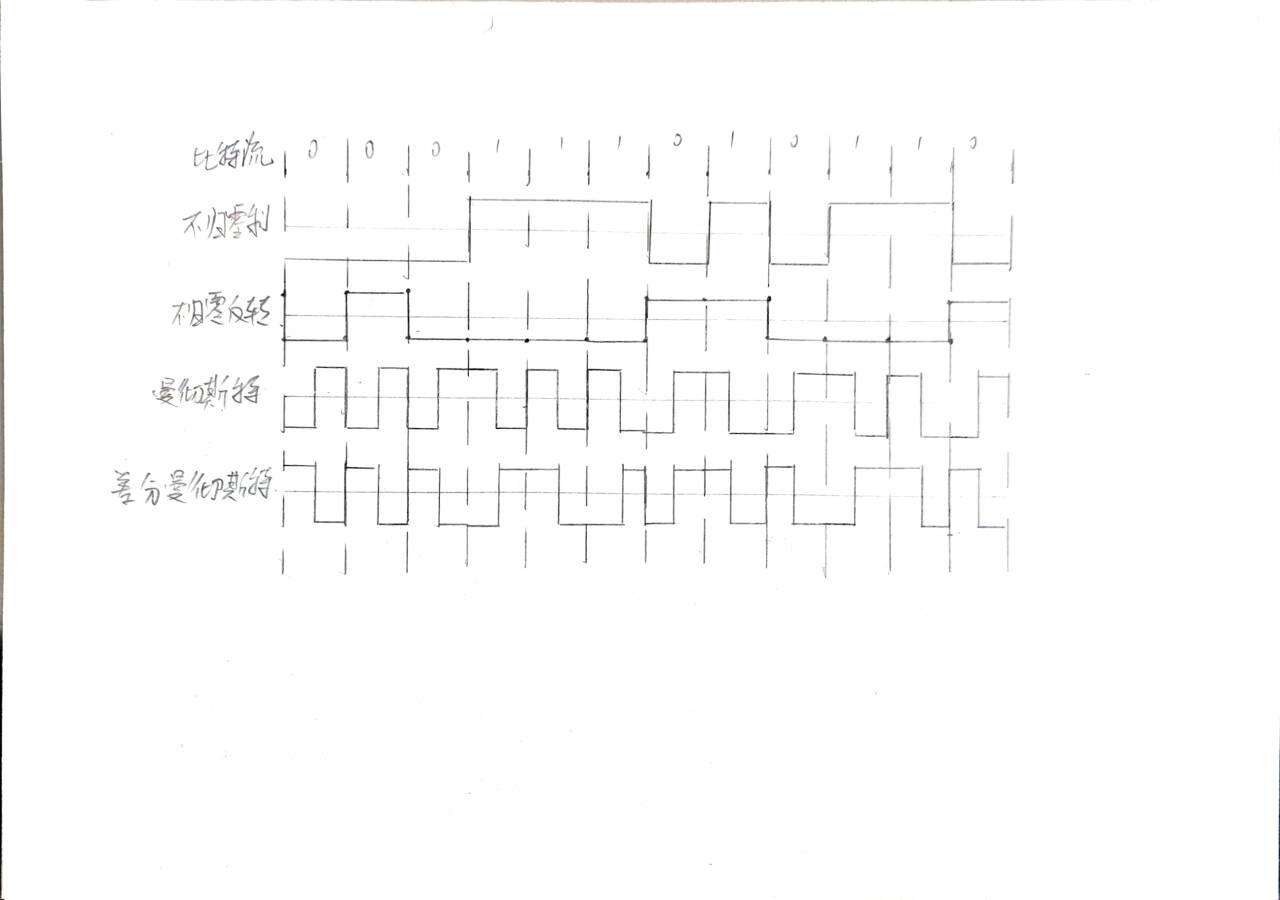 比特流 0 0 0 1 1 1 0 1 0 1 1 0
不归零制
不归零反转
曼彻斯特
差分曼彻斯特